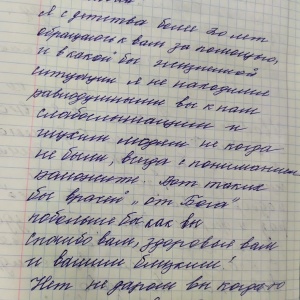 я с детства более 20 лет
обращаюсь к вам за помощью,
и в какой бы жизненной
ситуации я не находился
равнодушными вы к нам
слабослышащим и
глухим людям не когда
не были, всегда с пониманием
Вот таких
бы врачей „от Бога"
побольше бы как вы
Спасибо вам, здоровья вам
и вашим близким!
Нет не даром вы когда-то